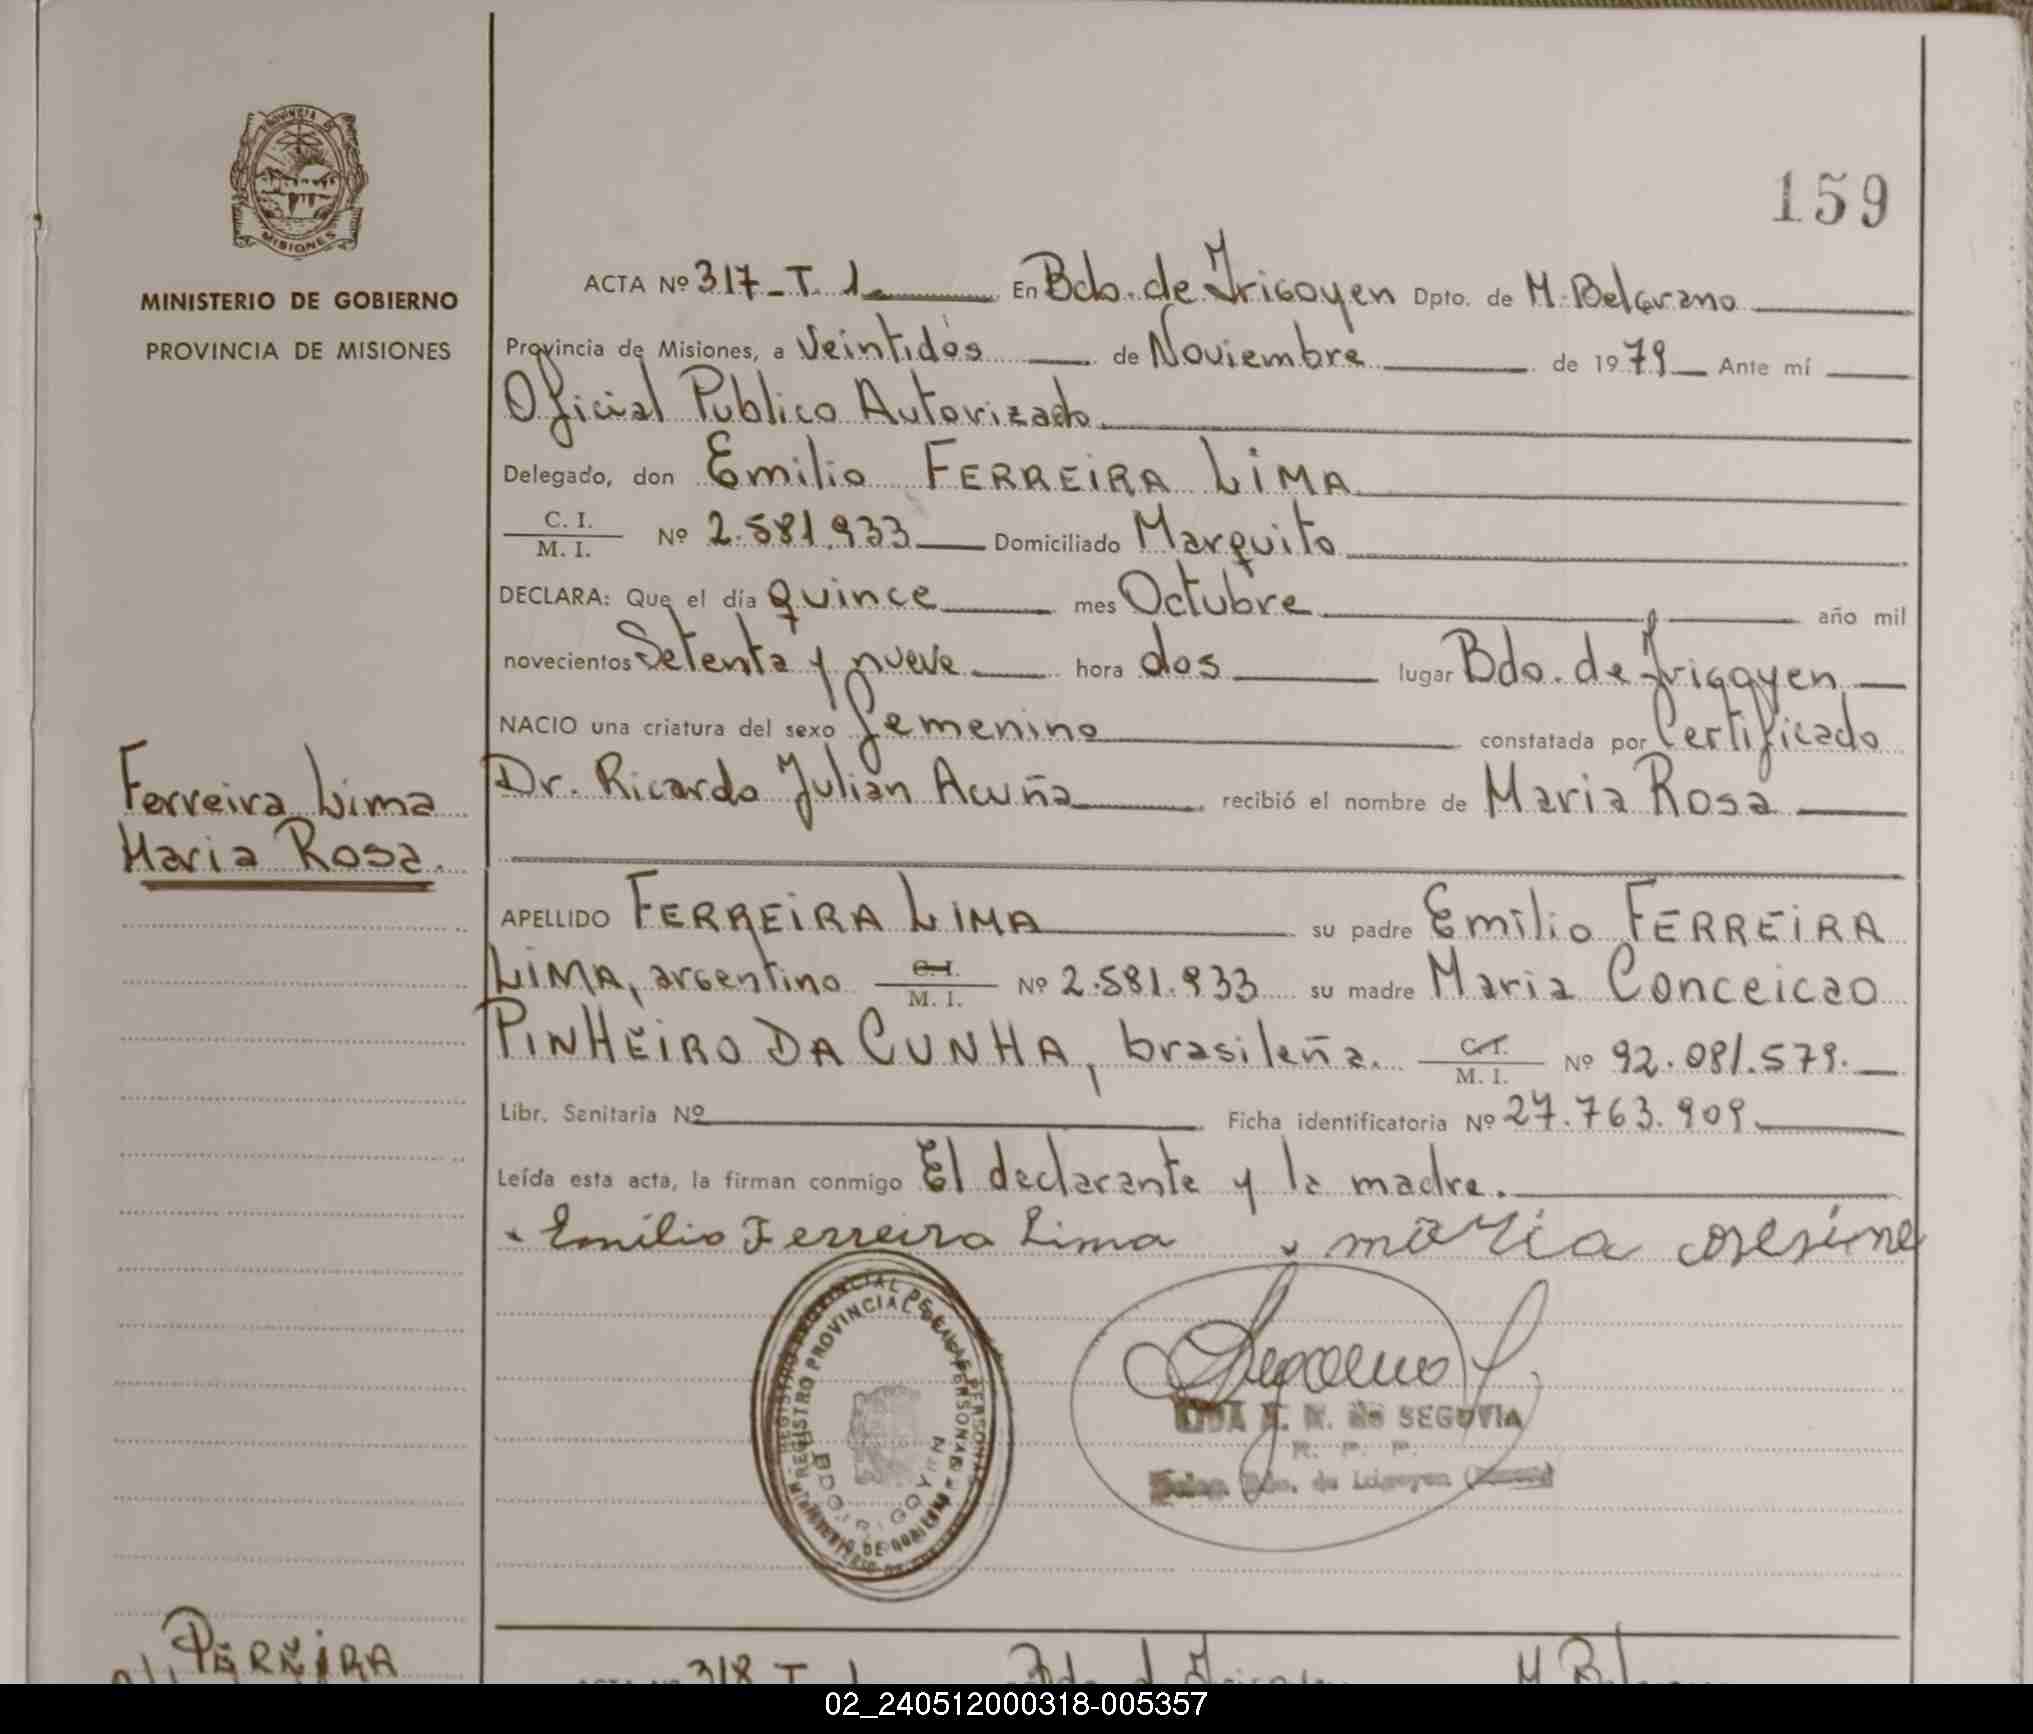 PROVINCIA DE
MISIONES
MINISTERIO DE GOBIERNO
PROVINCIA DE MISIONES
159
ACTA Nº 317_T. 1. En Bdo. de Irigoyen Dpto. de M. Belgrano
Provincia de Misiones, a Veintidós de Noviembre de 1979 Ante mí
Oficial Publico Autorizado
Delegado, don Emilio FERREIRA LIMA
C. I.
M. I. Nº 2.581.933 Domiciliado Marquito
DECLARA: Que el día quince mes Octubre año mil
novecientos Setenta y nueve hora dos lugar Bdo. de Irigoyen
NACIO una criatura del sexo femenino constatada por Certificado
Dr. Ricardo Julian Acuña recibió el nombre de Maria Rosa
Ferreira Lima
Maria Rosa.
APELLIDO FERREIRA LIMA su padre Emilio FERREIRA
LIMA, argentino C. I. M. I. Nº 2.581.933 su madre Maria Conceicao
PINHEIRO DA CUNHA, brasileña. C. I. M. I. Nº 92.081.579.
Libr. Sanitaria Nº Ficha identificatoria Nº 27.763.909
Leída esta acta, la firman conmigo El declarante y la madre.
Emilio Ferreira Lima maria
REGISTRO PROVINCIAL DE LAS PERSONAS
BDO. IRIGOYEN
MINISTERIO DE GOBIERNO
de SEGOVIA
R. P. P.
Deleg. Bdo. de Irigoyen
PEREIRA
318 T. 1 Bdo. d Irigoyen M. Belgrano
02_240512000318-005357